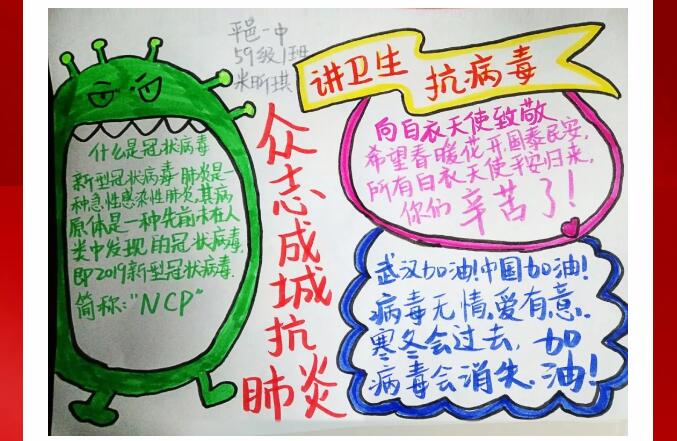 平邑一中
59级1班
米昕琪
讲卫生 抗病毒
什么是冠状病毒
新型冠状病毒肺炎是一
种急性感染性肺炎,其病
原体是一种先前未在人
类中发现的冠状病毒,
即2019新型冠状病毒.
简称:"NCP"
众志成城抗肺炎
向白衣天使致敬
希望春暖花开,国泰民安,
所有白衣天使平安归来,
你们 辛苦了!
武汉加油!中国加油!
病毒无情,爱有意.
寒冬会过去, 加
病毒会消失. 油!